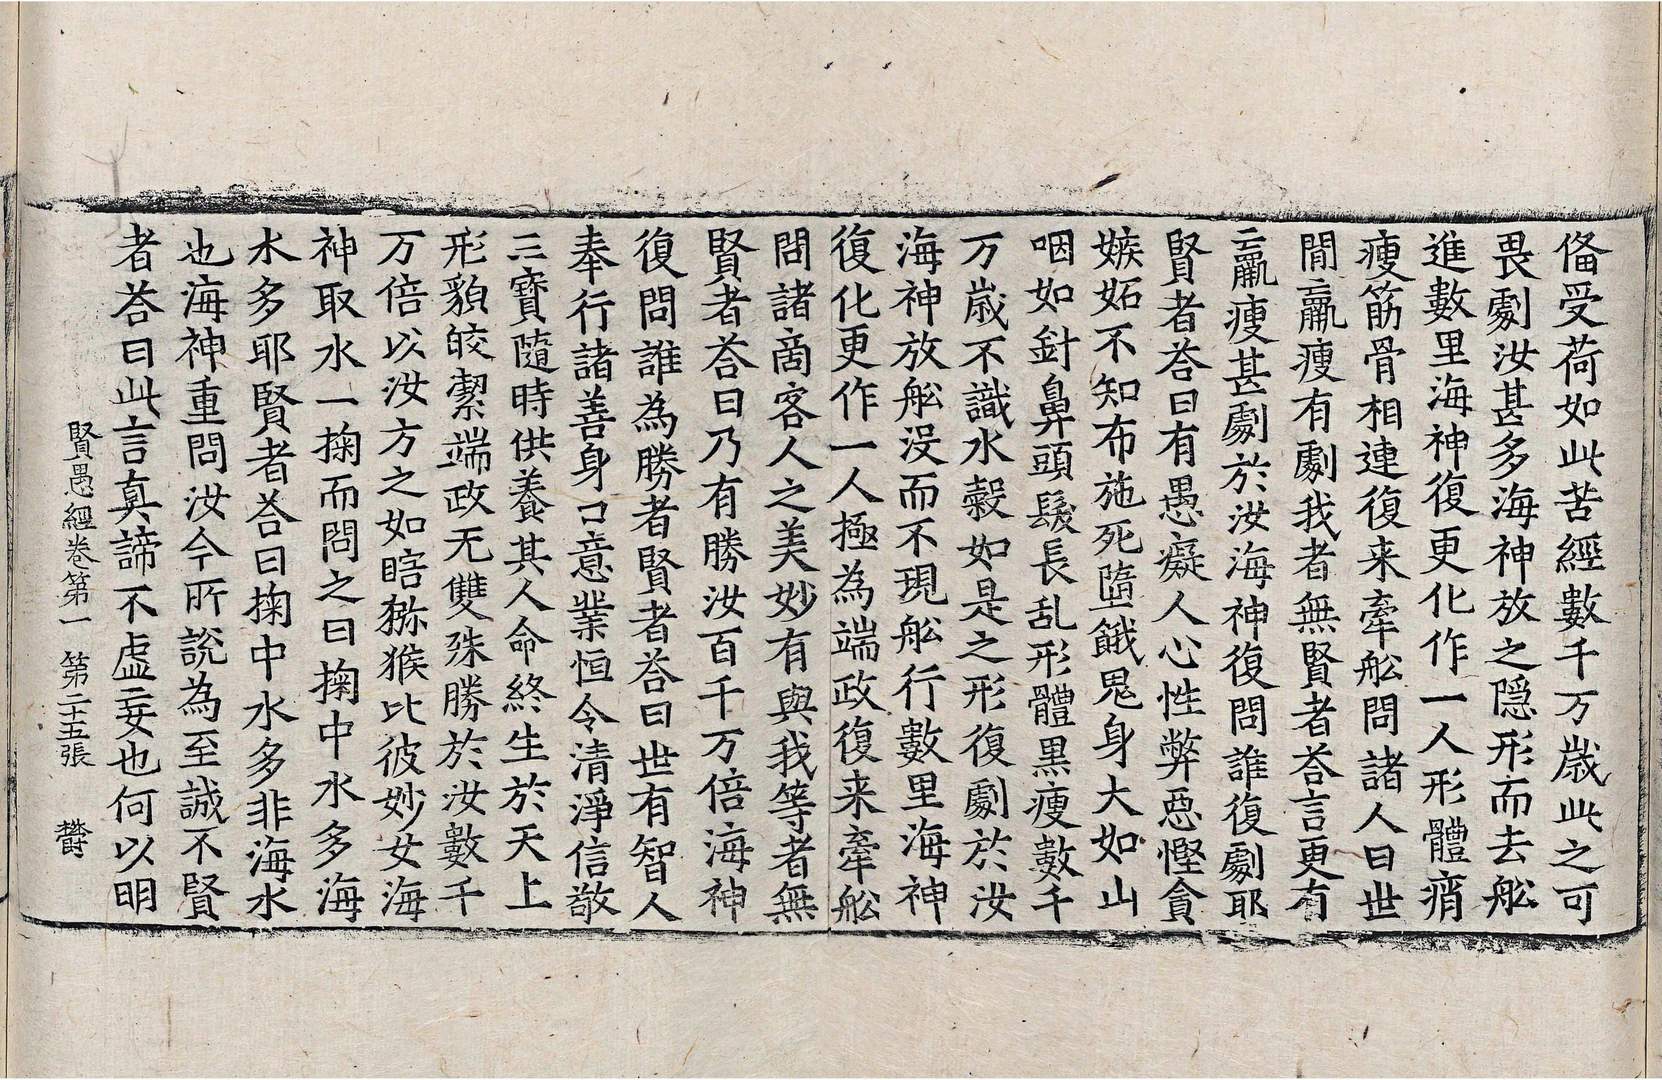 俻受荷如此苦經數千万歲此之可
畏劇汝甚多海神放之隱形而去舩
進數里海神復更化作一人形體痟
瘦筋骨相連復来牽舩問諸人曰世
間羸瘦有劇我者無賢者荅言更有
羸瘦甚劇於汝海神復問誰復劇耶
賢者荅曰有愚癡人心性弊惡慳貪
嫉妬不知布施死墮餓鬼身大如山
咽如針鼻頭髮長乱形體黑瘦數千
万歲不識水穀如是之形復劇於汝
海神放舩没而不現舩行數里海神
復化更作一人極為端政復来牽舩
問諸商客人之美妙有與我等者無
賢者荅曰乃有勝汝百千万倍海神
復問誰為勝者賢者荅曰世有智人
奉行諸善身口意業恒令清淨信敬
三寶隨時供養其人命終生於天上
形貌皎潔端政无雙殊勝於汝數千
万倍以汝方之如瞎猕猴比彼妙女海
神取水一掬而問之曰掬中水多海
水多耶賢者荅曰掬中水多非海水
也海神重問汝今所說為至誠不賢
者荅曰此言真諦不虛妄也何以明
賢愚經卷第一 第二十五張 欝